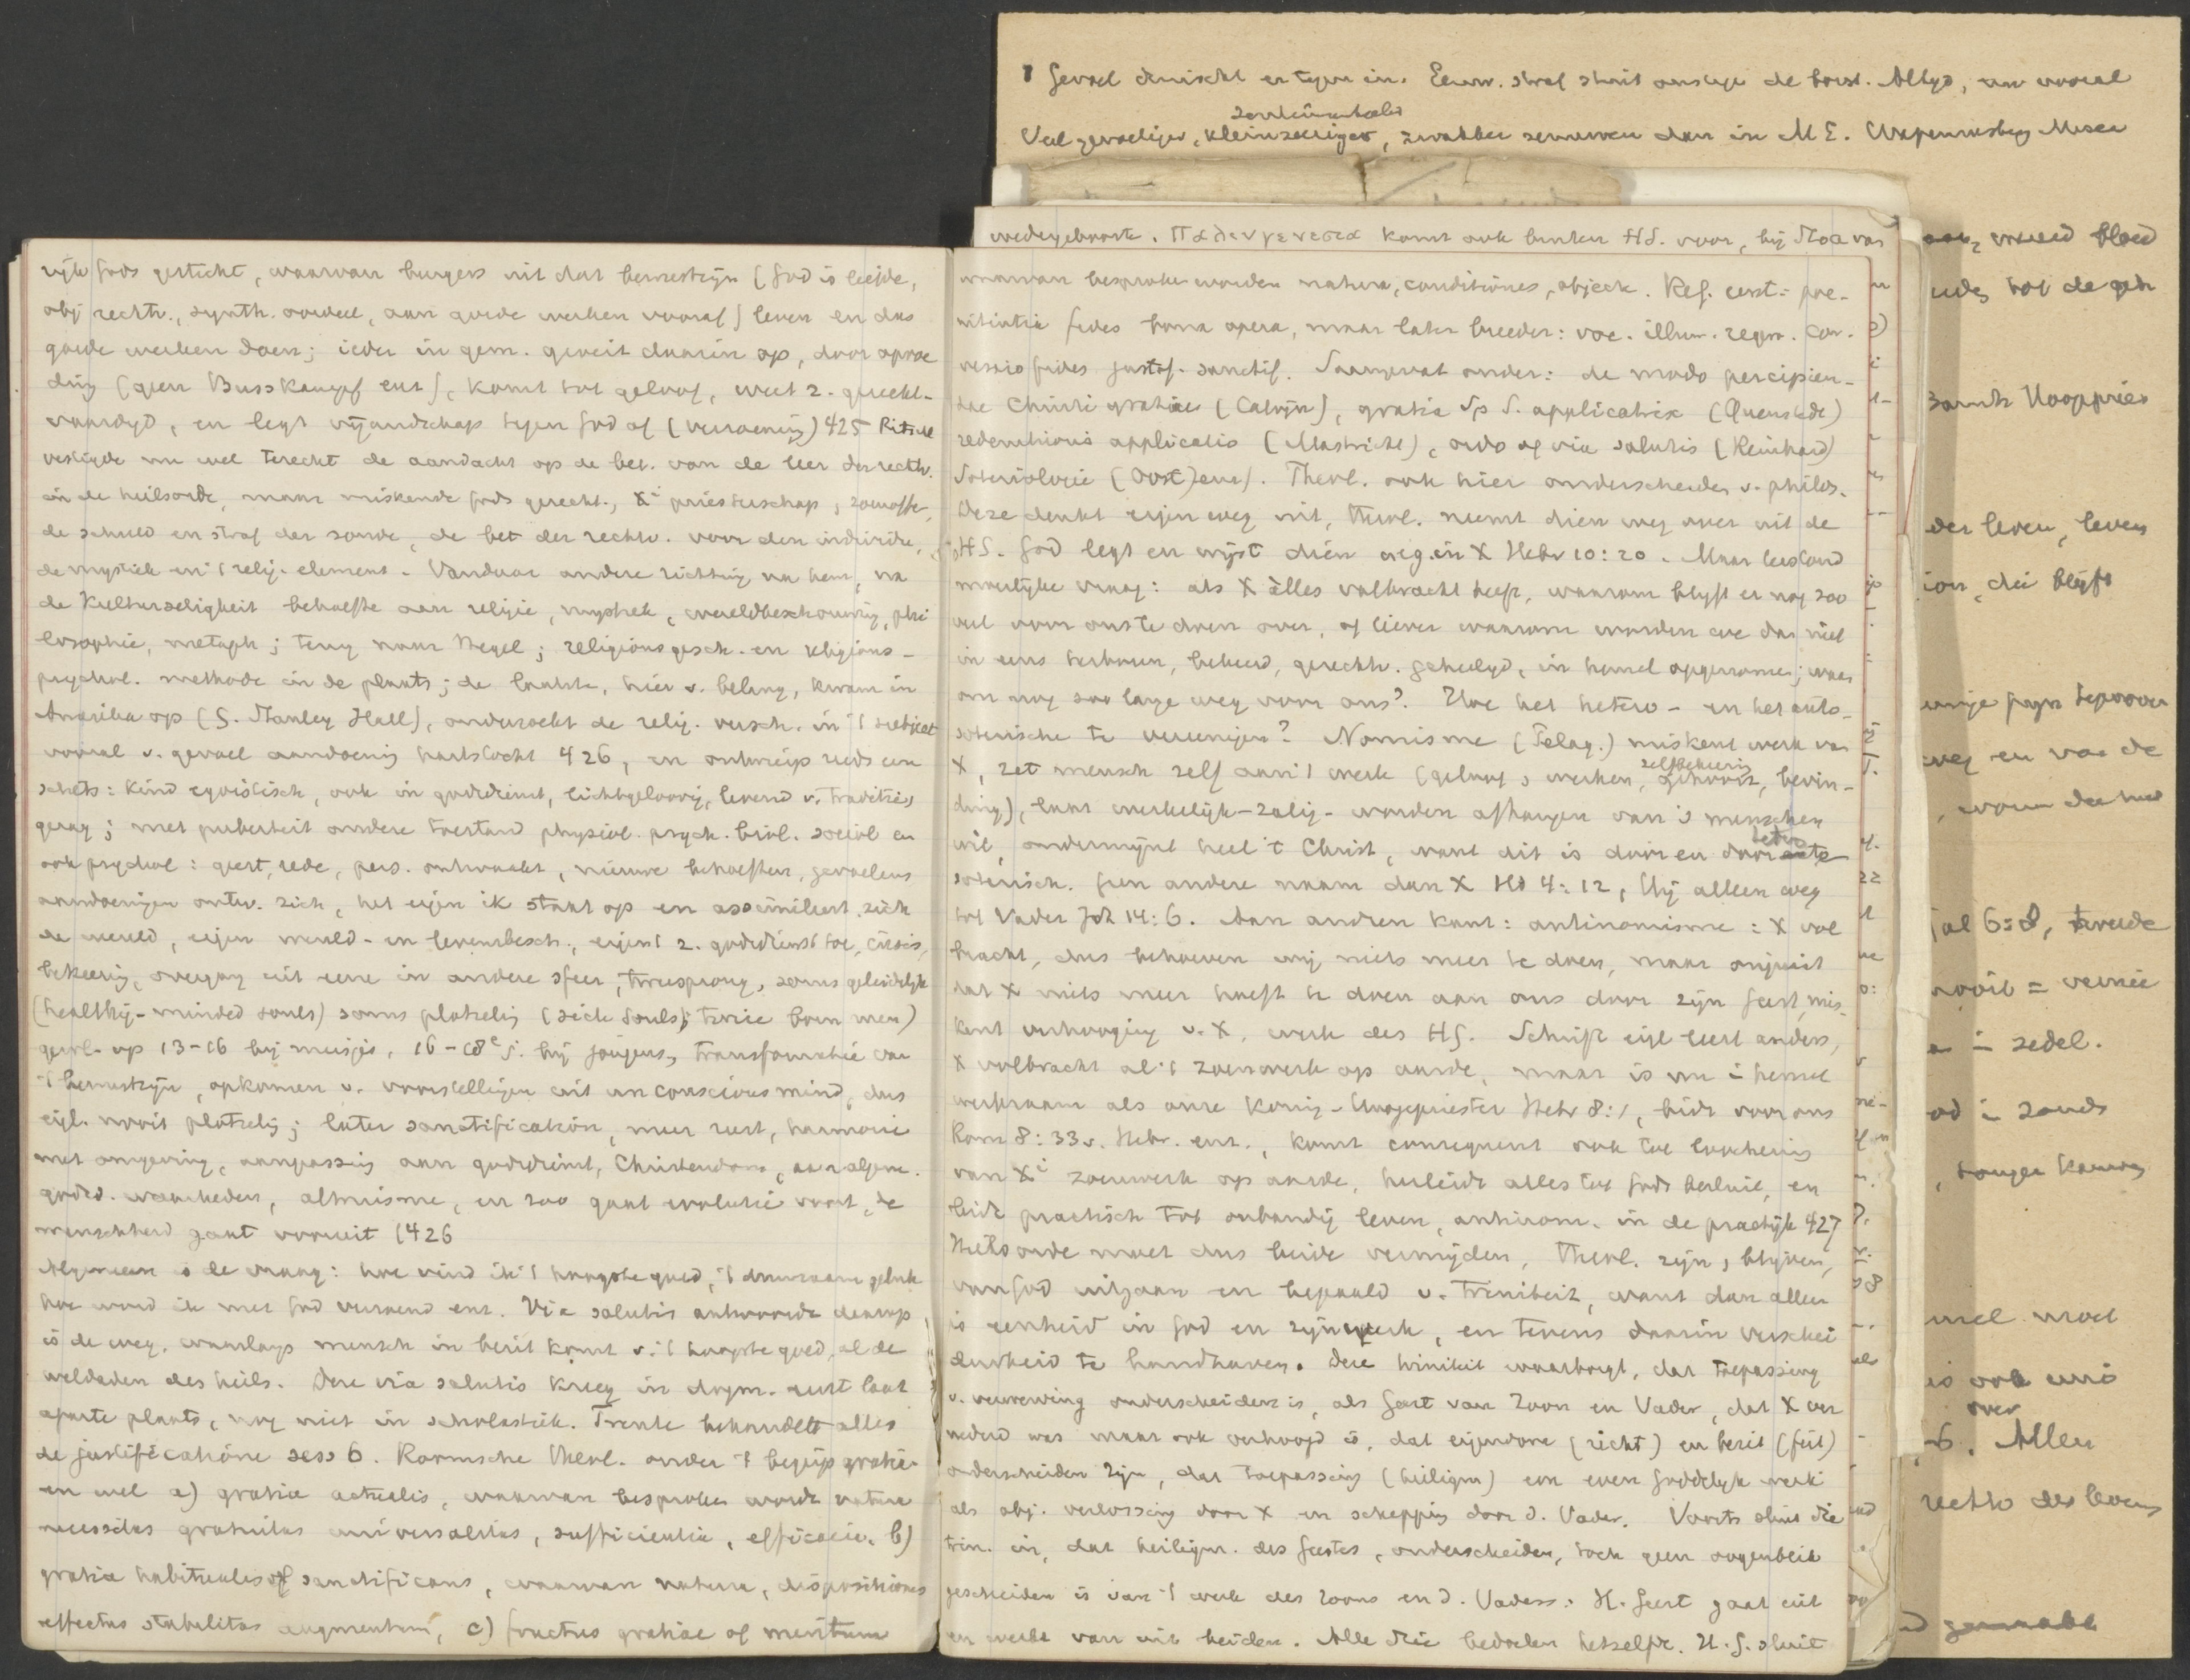 rijk Gods gesticht, waarvan burgers uit dat bewustzijn (God is liefde,
obj rechtv., synth. oordeel, aan goede werken vooraf) leven en dus
goede werken doen; ieder in gem. groeit daarin op, door opvoe
ding (geen Busskampf enz), komt tot geloof, weet z. gerecht-
vaardigd, en legt vijandschap tegen God af (verzoening) 425 Ritschl
vestigde nu wel terecht de aandacht op de bet. van de leer der rechtv.
in de heilsorde, maar miskende Gods gerecht., Xⁱ priesterschap, zoenoffer,
de schuld en straf der zonde, de bet der rechtv. voor den individu,
de mystiek en 't relig. element. Vandaar andere richting na hem, na
de Kulturseligkeit behoefte aan religie, mystiek, wereldbeschouwing, phi
losophie, metaph; terug naar Hegel; religionsgesch. en religions-
psychol. methode in de plaats; de laatste, hier v. belang, kwam in
Amerika op (S. Stanley Hall), onderzoekt de relig. versch. in 't subject
vooral v. gevoel aandoening hartstocht 426, en ontwierp reeds een
schets: kind egoistisch, ook in godsdienst, lichtgeloovig, levend v. traditie,
gezag; met puberteit andere toestand physiol. psych. biol. sociol en
ook psychol: geest, rede, pers. ontwaakt, nieuwe behoeften, gevoelens
aandoeningen ontw. zich, het eigen ik staat op en assimileert zich
de wereld, eigen wereld- en levensbesch., eigent z. godsdienst toe, crisis,
bekeering, overgang uit eene in andere sfeer, tweesprong, soms geleidelijk
(healthy-minded souls) soms plotseling (sick souls; twice born men)
gewl. op 13-16 bij meisjes, 16-18ᵉ j. bij jongens, transformatie van
't bewustzijn, opkomen v. voorstellingen uit unconscious mind, dus
eigl. nooit plotseling; later sanctification, meer rust, harmonie
met omgeving, aanpassing aan godsdienst, Christendom, aan algem.
godsd. waarheden, altruisme, en zoo gaat evolutie voort, de
menschheid gaat vooruit (426
Algemeen is de vraag: hoe vind ik 't hoogste goed, 't duurzaam geluk
hoe word ik met God verzoend enz. Via salutis antwoordt daarop,
is de weg, waarlangs mensch in bezit komt v. 't hoogste goed, al de
weldaden des heils. Deze via salutis kreeg in dogm. eerst laat
aparte plaats, nog niet in scholastiek. Trente behandelt alles
de justificatione sess 6. Roomsche theol. onder 't begrip gratia
en wel a) gratia actualis, waarvan besproken wordt natura
necessitas gratuitas universalitas, sufficientia, efficacia. b)
gratia habitualis of sanctificans, waarvan natura, dispositiones
effectus stabilitas augmentum, c) fructus gratiae of meritum
1 Gevoel druischt er tegen in. Eeuw. straf stuit ons tegen de borst. Altijd, nu vooral
sentimenteeler
Veel gevoeliger, kleinzeeriger, zwakker zenuwen dan in M E.
wedergeboorte. Παλινγενεσια komt ook buiten HS. voor, bij Stoa van
waarvan besproken worden natura, conditiones, object. Ref. eerst: poe-
nitentia fides bona opera, maar later breeder: voc. illum. regen. con-
versio fides justif. sanctif. Saamgevat onder: de modo percipien-
dae Christi gratiae (Calvijn), gratia Sp S. applicatrix (Quenstedt)
redemtionis applicatio (Mastricht), ordo of via salutis (Reinhard)
Soteriologie (Oost)enz). Theol. ook hier onderscheiden v. philos.
Deze denkt eigen weg uit, theol. neemt dien weg over uit de
HS. God legt en wijst dien weg in X Hebr 10:20. Maar bestond
moeilijke vraag: als X alles volbracht heeft, waarom blijft er nog zoo
veel voor ons te doen over, of liever waarom worden we dan niet
in eens herboren, bekeerd, gerechtv. geheiligd, in hemel opgenomen; waar
om nog zoo lange weg voor ons? Hoe het hetero- en het auto-
soterische te vereenigen? Nomisme (Pelag.) miskent werk van
X, zet mensch zelf aan 't werk (geloof, werken, zelfbekeering, bevin-
ding), laat werkelijk-zalig-worden afhangen van 's menschen
wil, ondermijnt heel 't Christ, want dit is door en door hetero
soterisch. Geen andere naam dan X Hd 4:12, Hij alleen weg
tot Vader Joh 14:6. Aan andren kant: antinomisme: X vol
bracht, dus behoeven wij niets meer te doen, maar onjuist
dat X niets meer hoeft te doen aan ons door zijn Geest, mis-
kent verhooging v. X, werk des HG. Schrift eigl leert anders,
X volbracht al 't zoenwerk op aarde, maar is nu in hemel
werkzaam als onze Koning-Hoogepriester Hebr 8:1, bidt voor ons
Rom 8:33v. Hebr. enz., komt consequent ook tot loochening
van Xⁱ zoenwerk op aarde, herleidt alles tot Gods besluit, en
leidt practisch tot onbandig leven, antinom. in de practijk 427
Heilsorde moet dus beide vermijden, theol. zijn, blijven,
van God uitgaan en bepaald v. Triniteit, want dan alleen
is eenheid in God en zijn werk, en tevens daarin verschei
denheid te handhaven. Deze triniteit waarborgt, dat toepassing
v. verwerving onderscheiden is, als Geest van Zoon en Vader, dat X ver
nederd was maar ook verhoogd is, dat eigendom (recht) en bezit (feit)
onderscheiden zijn, dat toepassing (heiligm) een even goddelijk werk
als obj. verlossing door X en schepping door d. Vader. Voorts sluit die
trin. in, dat heiligm. des Geestes, onderscheiden, toch geen oogenblik
gescheiden is van 't werk des Zoons en d. Vaders. H. Geest gaat uit
en werkt van uit beiden. Alle drie bedoelen hetzelfde. H. G. sluit
der leven, leven
ion, die blijft
Gal 6:8, tweede
= zedel.
is ook eens
over
Allen